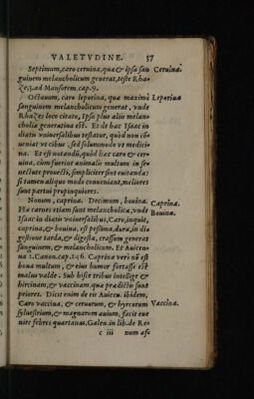 VALETVDINE. 37
Septimum, caro ceruina, quæ & ipsa san Ceruina.
guinem melancholicum generat, teste Rha-
zes.ad Mansorem.cap.9.
Octauum, caro leporina, quæ maximè Leporina
sanguinem melancholicum generat, vnde
Rhazes loco citato, Ipsa plus alijs melan-
choliæ generatiua est. Et de hac Isaac in
diætis vniuersalibus testatur, quòd non cō-
ueniat vt cibus, sed solummodo vt medici-
na. Et est notandū, quòd hæc caro & cer-
uina, cùm fuerint animaliū multum in se-
nectute prouecti, simpliciter sint euitandæ:
si tamen aliquo modo conueniant, meliores
sunt partui propinquiores.
Nonum, caprina. Decimum, bouina. Caprina.
Hæ carnes etiam sunt melancholicæ, vnde Bouina.
Isaac in diætis vniuersalibus, Caro, inquit,
caprina, & bouina, est pessima, dura, in di-
gestione tarda, & digesta, crassum generat
sanguinem, & melancholicum. Et Auicen-
na 1.Canon.cap.146. Caprina verò nō est
bona multum, & eius humor fortasse est
malus valde. Sub hisce tribus intellige &
hircinam, & vaccinam, quæ prædictis sunt
priores. Dicit enim de eis Auicen. ibidem,
Caro vaccina, & ceruorum, & hyrcorum Vaccina.
syluestrium, & magnarum auium, facit eue
nire febres quartanas. Galen. in lib. de Re-
c iij num afe